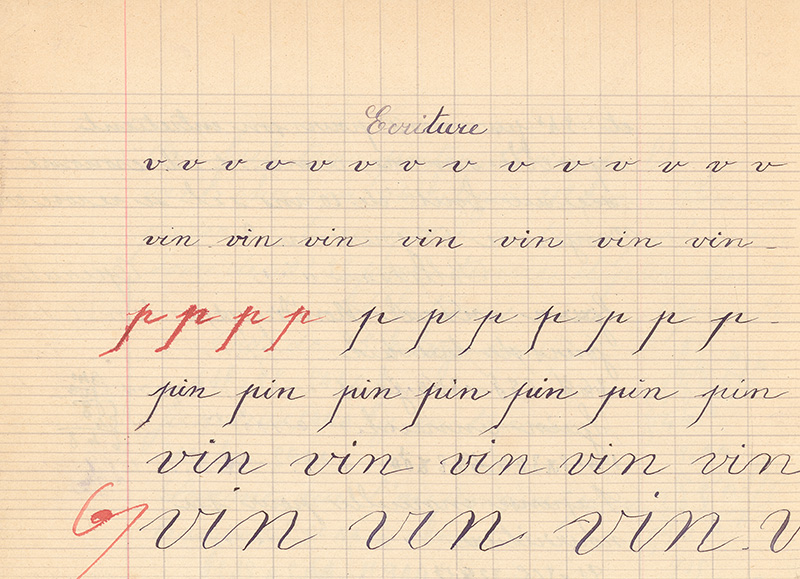 Ecriture
v v v v v v v v v v v v v v
vin vin vin vin vin vin vin
p p p p p p p p p p p
pin pin pin pin pin pin pin
vin vin vin vin vin
vin vin vin v